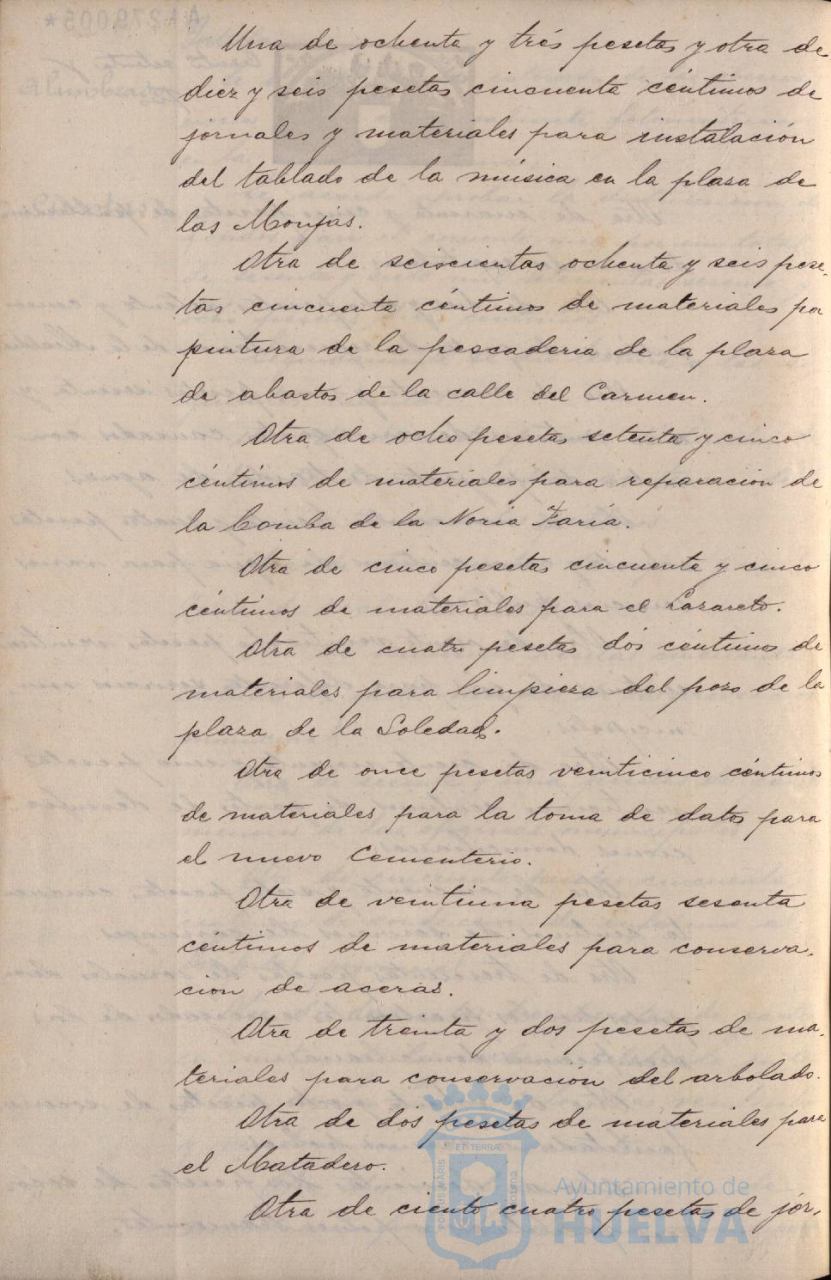 Una de ochenta y trés pesetas y otra de
diez y seis pesetas cincuenta céntimos de
jornales y materiales para instalación
del tablado de la música en la plaza de
las Monjas.
Otra de seiscientas ochenta y seis pese-
tas cincuenta céntimos de materiales pa
pintura de la pescaderia de la plaza
de abastos de la calle del Carmen.
Otra de ocho pesetas setenta y cinco
céntimos de materiales para reparación de
la bomba de la Noria Faría.
Otra de cinco pesetas cincuenta y cinco
céntimos de materiales para el Lazareto.
Otra de cuatro pesetas dós céntimos de
materiales para limpieza del pozo de la
plaza de la Soledad.
Otra de once pesetas veinticinco céntimos
de materiales para la toma de datos para
el nuevo Cementerio.
Otra de veintiuna pesetas sesenta
céntimos de materiales para conserva-
cion de aceras.
Otra de treinta y dos pesetas de ma-
teriales para conservación del arbolado.
Otra de dós pesetas de materiales para
el Matadero.
Otra de ciento cuatro pesetas de jor-
Ayuntamiento de
HUELVA